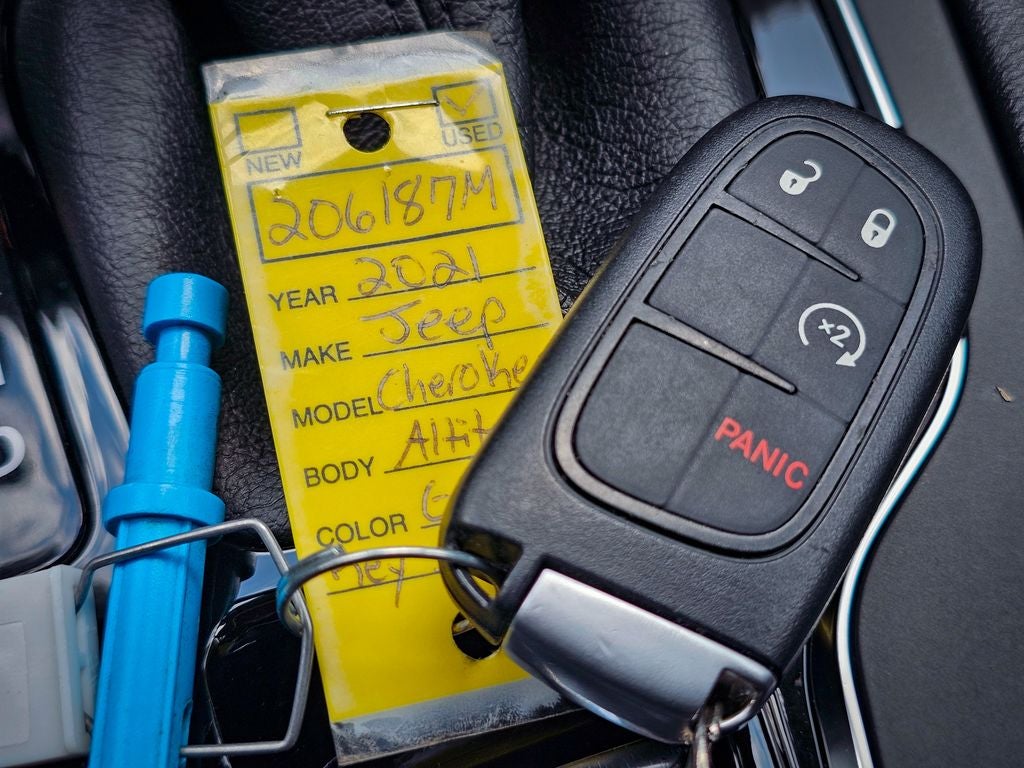 NEW
USED
206187M
YEAR 2021
MAKE Jeep
MODEL Cheroke
BODY Altit
COLOR G
Key
x2
PANIC